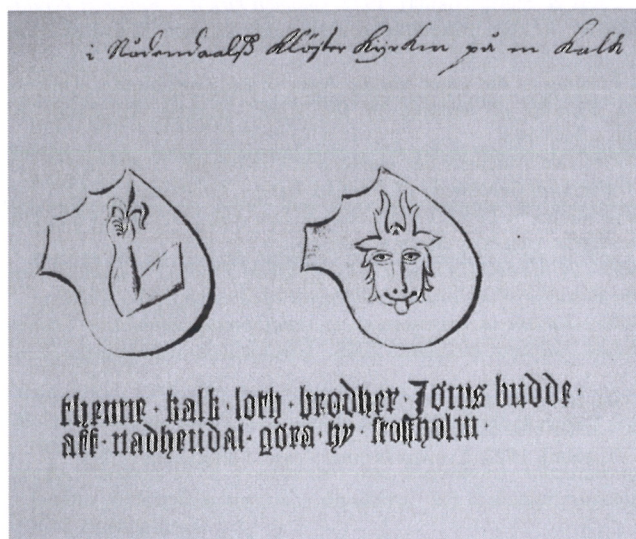 i Nådendaalß Klöster Kyrkm på en Kalk
thenne · kalk · loth · brodher Jöns budde ·
aff · nadhendal · göra · hy · stokholm ·